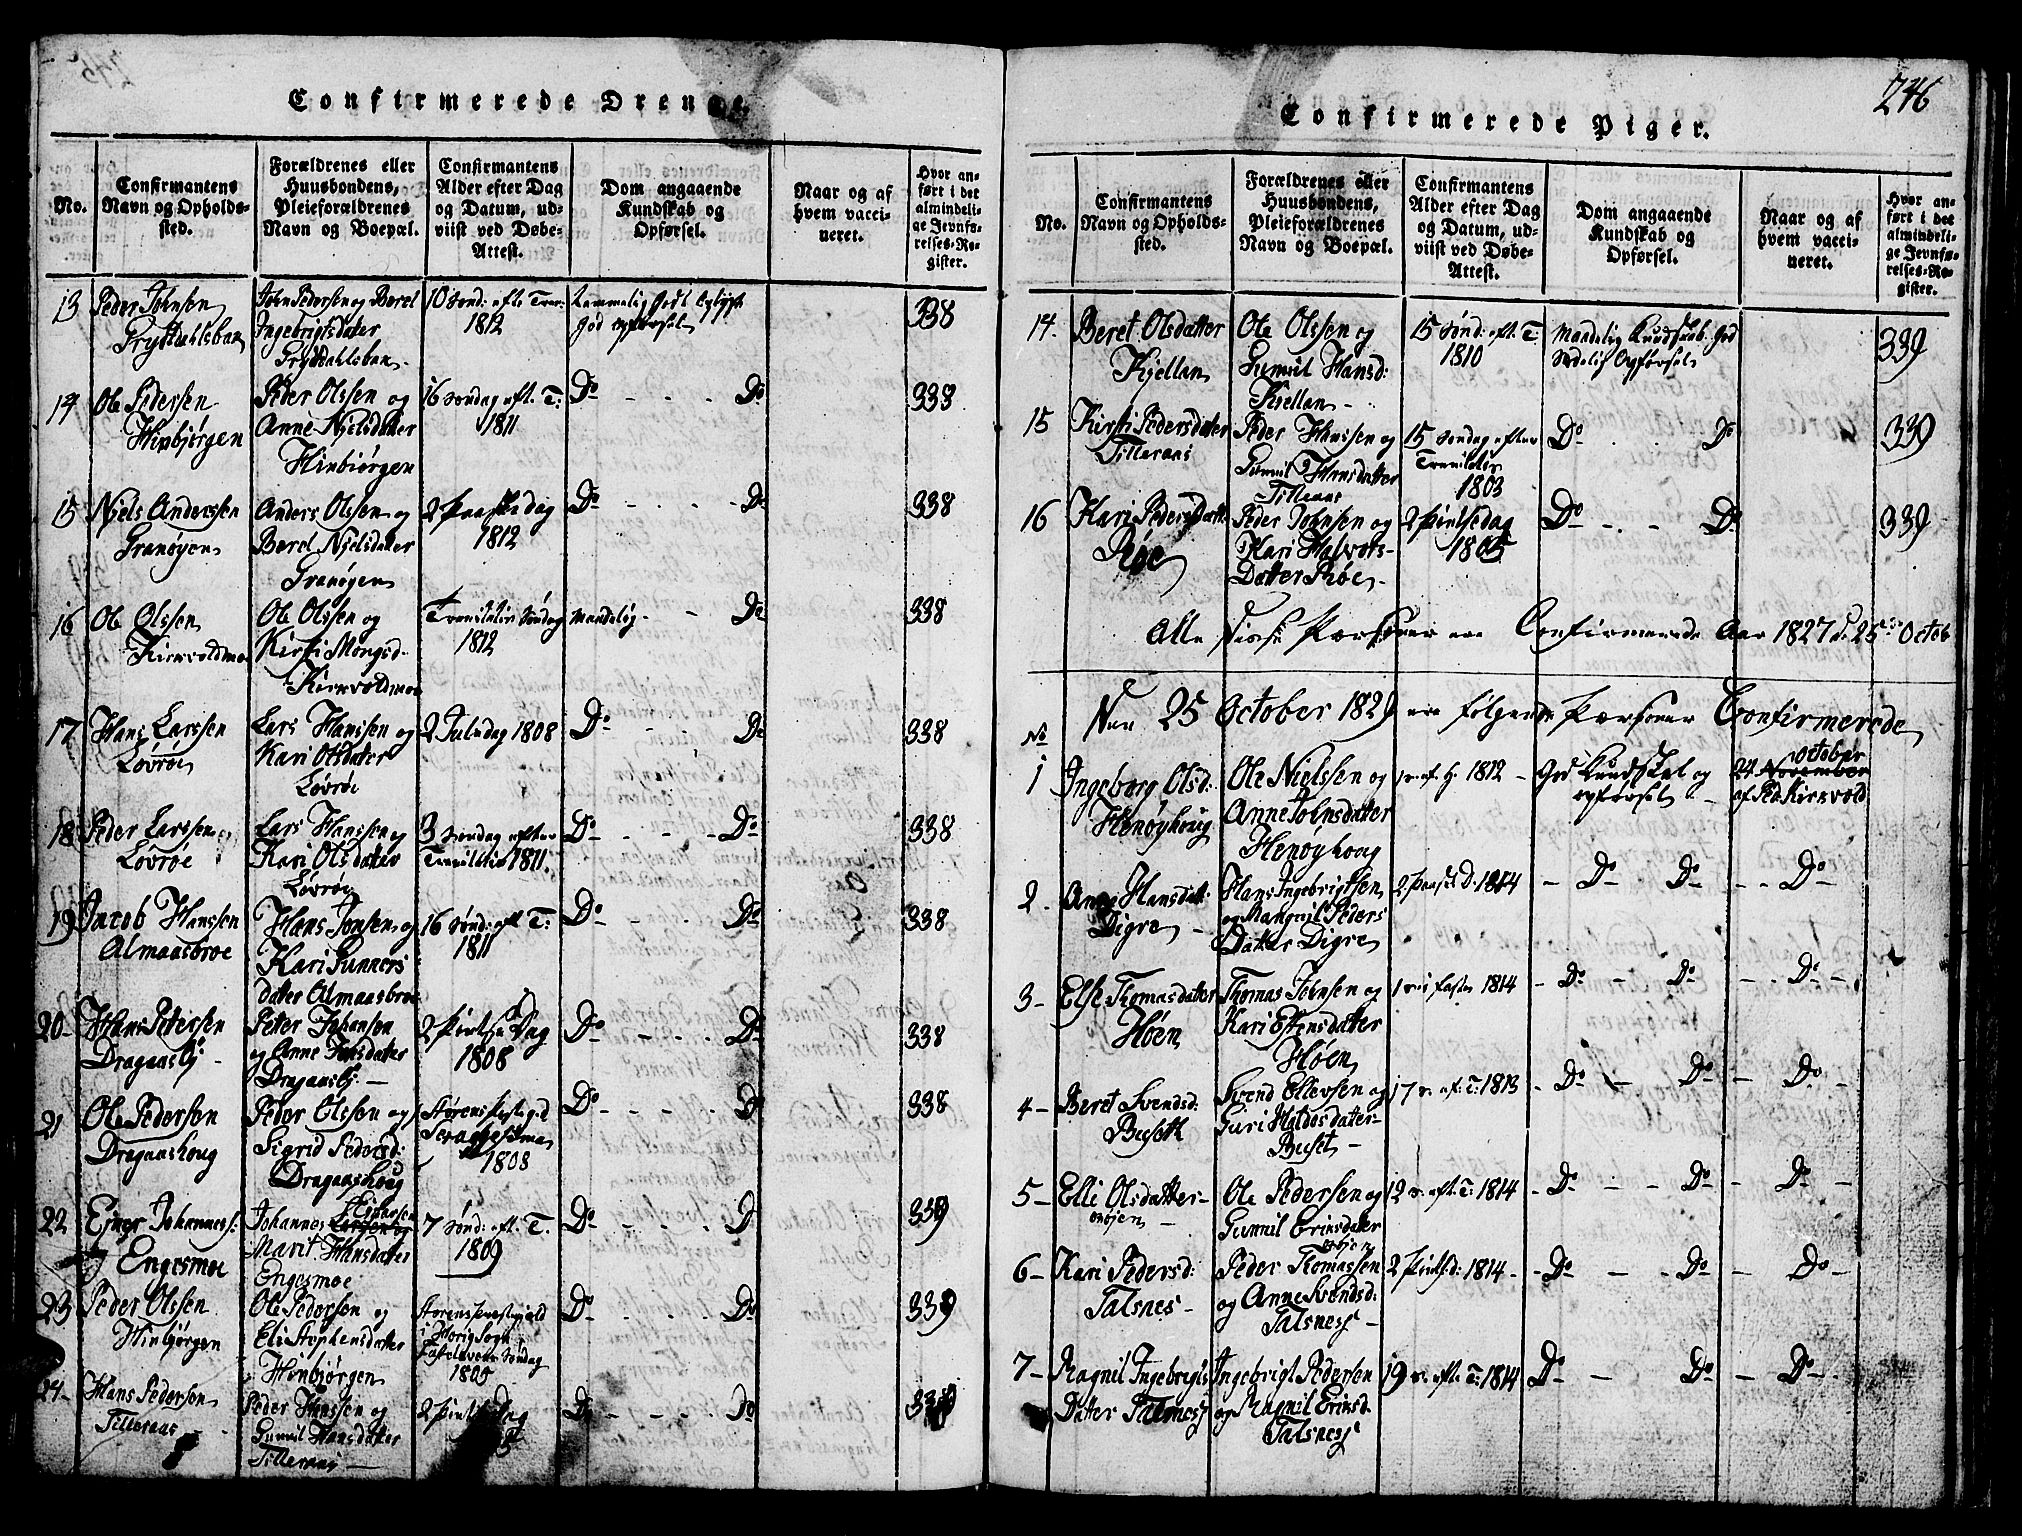 Confirmerede Drenge.
No.
Confirmantens
Navn og Opholds-
sted.
Forældrenes eller
Huusbondens,
Pleieforældrenes
Navn og Boepæl.
Confirmantens
Alder efter Dag
og Datum, ud-
viist ved Døbe-
Attest.
Dom angaaende
Kundskab og
Opførsel.
Naar og af
hvem vacci-
neret.
Hvor an-
ført i det
almindeli-
ge Jevnfø-
relses-Re-
gister.
13 Peder Johnsen
John Pedersen og Beret
Ingebrigtsdater
1812
God opførsel
338
14 Ole Pedersen
Hinbjørgen
Peder Olssen og
Anne Njelsdatter
Hinbiørgen
16 Søndag eft. T:
1811
Do - - - Do
338
15 Njels Anderssen
Granøyen
Anders Olssen og
Beret Njelsdater
Granøgen
2 Paaskedag
1812
Do - - - Do
338
16 Ole Olssen
Kirkvoldmoe
Ole Olssen og
Kirsti Mongsd.
Kirkvoldmoe
1812
Maadelig - Do
338
17 Hans Larssen
Løvrøe
Lars Hanssen og
Kari Olsdater
Løvrøe
2 Juledag 1808
Do - - Do
338
18 Peder Larssen
Løvrøe
Lars Hanssen og
Kari Olsdatter
Løvrøe
3 Søndag efter
1811.
Do - - - Do
338
19 Jacob Hanssen
Almaasbroe
Hans Jonsen og
Kari Gunners
dater Almaasbroe
16 Sønd: eft T:
1811
Do - - - Do
338
20 Hans Petersen
Peter Johansen
og Anne
2 Pintse Dag
1808
Do - - - Do
338
21 Ole Pedersen
Draganshoug
Peder Olssen og
Sigrid Pedersd:
Draganshoug
1808
Do - - - Do
338
22 Ejner Johannes:
Engesmoe
Johannes
Marit Hansdater
Engesmoe
7 Sønd: eft. T.
1809
Do - - - D
339
23 Peder Olssen
Hinbjørgen
Ole Pedersen og
Eli Stephensdatter
Hinbjørgen
Størens Prestegield
i Horig Sogn
Fastelavens Søndag
1805
Do - - - Do
339
24 Hans Pedersen
Tilleraas
Peder Hanssen og
Gunnil Hansdater
Tilleraas
2 Pintse Dag
Do - - - Do
339
246
Confirmerede Piger.
No.
Confirmantens
Navn og Opholds-
sted.
Forældrenes eller
Huusbondens,
Pleieforældrenes
Navn og Boepæl.
Confirmantens
Alder efter Dag
og Datum, ud-
viist ved Døbe-
Attest.
Dom angaaende
Kundskab og
Opførsel.
Naar og af
hvem vacci-
neret.
Hvor an-
ført i det
almindeli-
ge Jevnfø-
relses-Re-
gister.
14. Beret Olsdatter
Kjellan
Ole Olssen og
Gunnil Hansd:
Kiellan
15 Sønd: eft. T.
1810
Maadelig Kundskab God
Sædelig Opførsel
339
15 Kirsti Pedersdater
Tilleraas
Peder Hanssen og
Gunnil Hansdatter
Tilleraas
15 Søndag efter
1803
Do - - Do
339
16 Kari Pedersdatt:
Røe
Peder Johnsen og
Kari Halvors-
Datter Røe
2 Pintsedag
1805
Do - - Do
339
Alle disse Personer ere Confirmerede Aar 1827 d. 25de Octob
Den 25 October 1829 ere følgende Personer Confirmerede
No
1 Ingeborg Olsd:
Henøyhoug
Ole Nielssen og
Anne Johnsdatter
Henøyhoug
1812
God Kundskab og
opførsel
October
24 November
af Ped. Kirkvold
2. Anne Hansdatt:
Digre
Hans Ingebrigtsen
og Magnil Peders
Datter Digre
2 Paaskd: 1814
Do - Do - Do
3 Else Thomasdatter
Høen
Thomas Johnsen og
Kari Estensdatter
Høen
1 i Faste 1814
Do - Do - Do
4 Beret Svendsd:
Buseth
Svend Ellevsen og
Guri Haldosdatter
Buset
17 s. eft: T: 1813
Do - Do - Do
5 Elli Olsdatter
Ole Pedersen og
Gunnil Ericsdater
12 s. eft: T: 1814
Do - Do - Do
6 Kari Pedersd:
Talsnes
Peder Thomassen
og Anne Svendsd:
Talsness
2 Pintsd: 1814
Do - Do - Do
7 Magnil Ingebrigts
Dater Talsness
Ingebrigt Pedersen
og Magnil Eriksd.
Talsness
19 s. eft T: 1814
Do - Do - Do